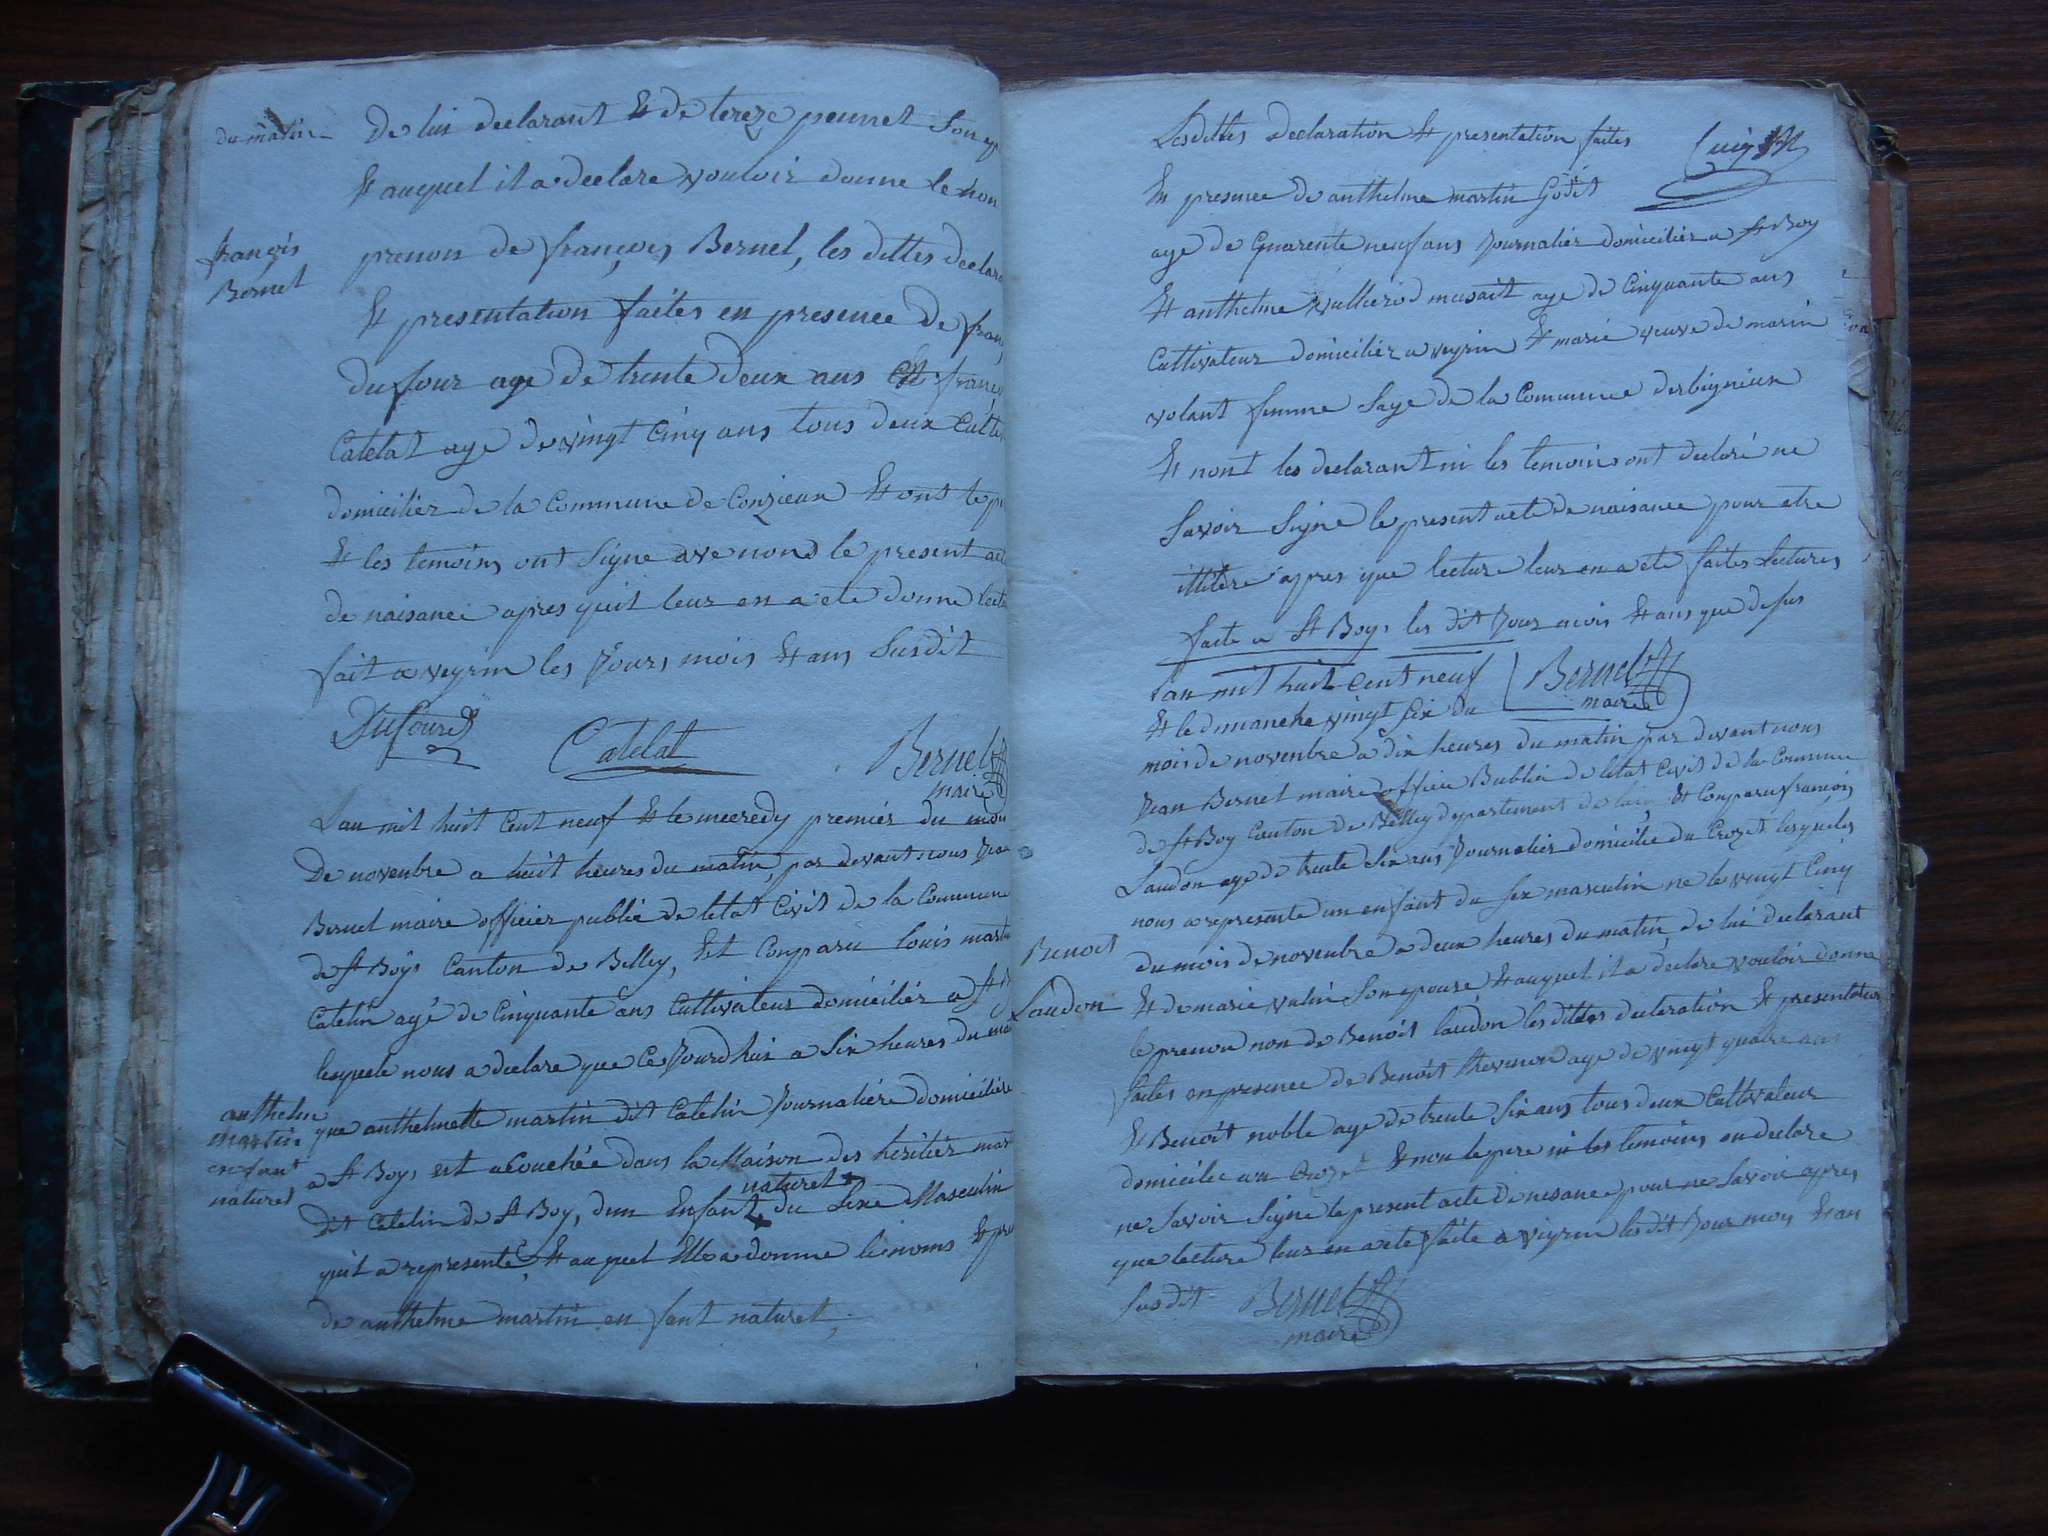 du matin
De lui declarant et de tereze pennet Son
Et auquel il a declare vouloir donne le
françois
Bernet
prenon de françois Bernet, les dittes declara
Et presentation faites en presence de fran
dufour age de trente deux ans Et franco
Catelat age de vingt Cinq ans tous deux Culti
domiciliez de la Commune de Conzieux Et ont le p
Et les temoins ont Signe ave nous le present ac
de naisance apres quil leur en a ete donne lect
fait a veyrin les Jours mois Et ans Susdit
Dufour
Catelat
Bernet
maire
Lan mil huit Cent neuf Et le mecredy premier du mois
De novenbre a huit heures du matin, par devant nous
Bernet maire officier public de letat Civil de la Commune
de St Boys Canton de Belley, Est Conparu louis marti
Catelin agé de Cinquante ans Cultivateur domiciliez a St
lequele nous a declare que Ce Jourdhui a Six heures du ma
anthelm
martin
enfant
naturel
que anthelmette martin dit Catelin Journaliére domiciliée
a St Boys est acouchée dans la Maison des héritiér mar
naturel
dit Catelin de St Boy, dun Enfant du Sexe Masculin
quil a representé Et auquel Elle a donne le noms Et pre
de anthelme martin en fant naturel,
Lesdittes declaration Et presentation faites
En presence de anthelme martin Godit
age de Quarente neuf ans Journalier domiciliez a St Boy
Et anthelme vullierod age de Cinquante ans
Cultivateur domiciliez a veyrin Et marie veuve de marin
volant femme Sage de la Commune derbignieux
Et nont les declarant ni les temoins ont declaré ne
Savoir Signe le present acte de naisance pour etre
apres que lecture leur en a ete faites lectures
faite a St Boys les dit Jour mois Et ans que desus
Bernet
maire
Lan mil huit Cent neuf
Et le dimanche vingt Six du
mois de novenbre a dix heures du matin par devant nous
Jean Bernet maire officie Bublic de letat Civil de la Commune
de St Boy Canton de Belley departement de lain Et Conparu françois
Laudon age de trente Six ans Journalier domicilie du Crozet lequeles
nous a represente un enfant du sex masculin ne le vingt Cinq
Benoit
Laudon
du mois de novenbre a deux heures du matin de lui declarant
Et de marie vulin Son epouse Et auquel il a declare vouloir donne
le prenon non de Benoit laudon les dittes declaration Et presentation
faites en presence de Benoit thevenon age de vingt quatre ans
Et Benoit noble age de trente Six ans tous deux Cultivateur
domicilie au Crozet Et non le pere ni les temoins en declare
ne Savoir Signé le present acte de nesance pour ne Savoir apres
que lecture leur en a ete faite a veyrin lesdit Jour moy Et an
Susdit
Bernet
maire